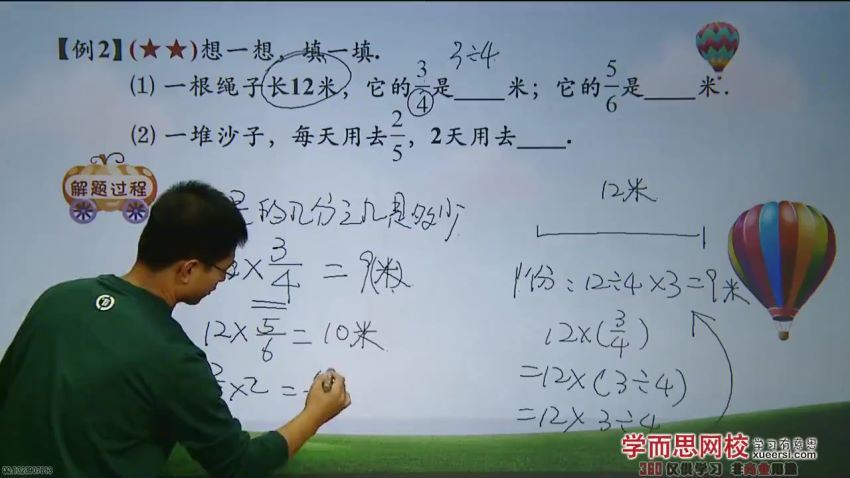 【例2】(★★)想一想，填一填.
3÷4
(1) 一根绳子长12米，它的3/4是____米；它的5/6是____米.
(2) 一堆沙子，每天用去2/5，2天用去____.
解题过程
的几分之几是多少
12米
×3/4=9(米)
1份：12÷4×3=9米
12×5/6=10米
12×(3/4)
×2=
=12×(3÷4)
=12×3÷4
学而思网校 学习有意思
xueersi.com
360仅供学习